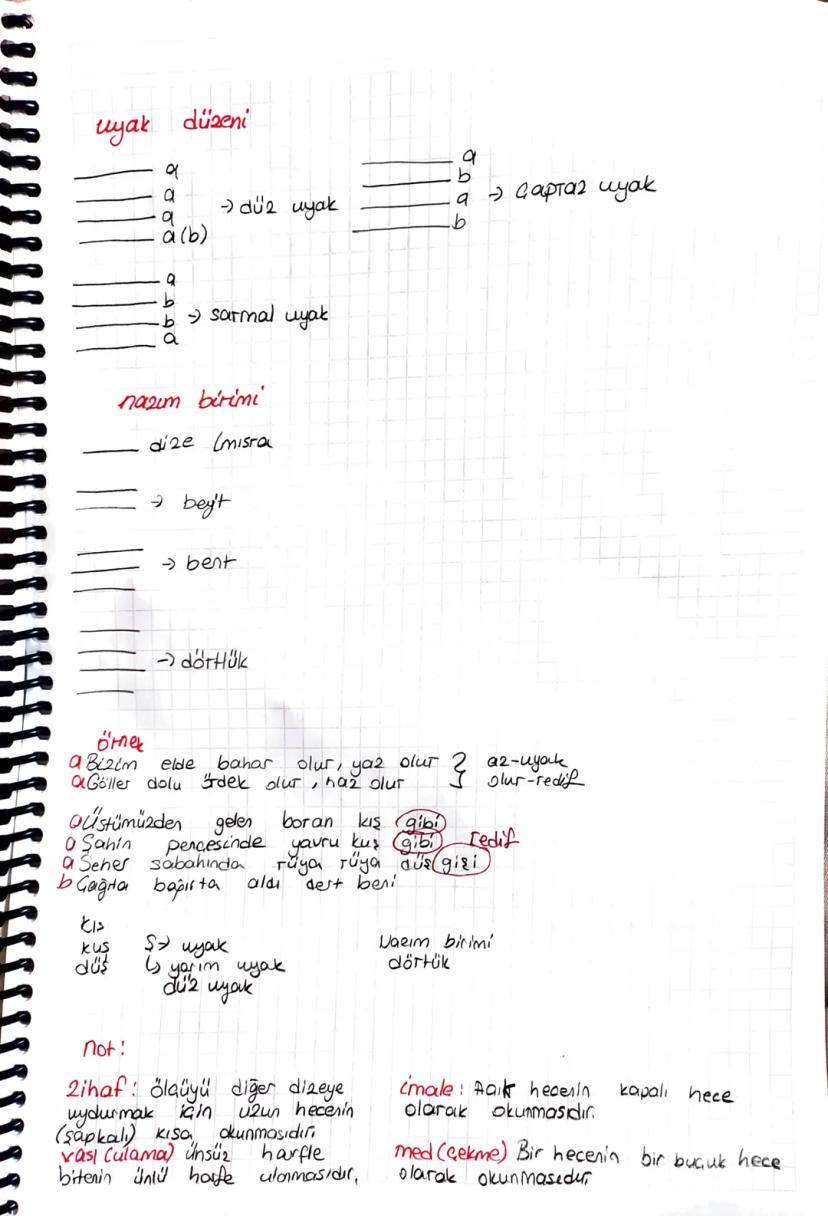 uyak düzeni
a
a
a → düz uyak
a(b)
a
b
a → Çapraz uyak
b
a
b
b → sarmal uyak
a
nazım birimi
dize (mısra
→ beyit
→ bent
→ dörtlük
örnek
a Bizim elde bahar olur, yaz olur } az-uyak
a Göller dolu ördek olur, naz olur olur-redif
a Üstümüzden gelen boran kış gibi
a Şahin pençesinde yavru kuş gibi redif
a Seher sabahında rüya rüya düş gizi
b Çağrta bağırta aldı dert beni
kış
kuş Ş→ uyak
düş ↳ yarım uyak
düz uyak
Nazım birimi
dörtük
not!
Zihaf: ölçüyü diğer dizeye
uydurmak için uzun hecenin
(şapkalı) kısa okunmasıdır.
vasl (ulama) ünsüz harfle
bitenin ünlü harfe ulanmasıdır.
imale: Açık hecenin kapalı hece
olarak okunmasıdır.
med (çekme) Bir hecenin bir buçuk hece
olarak okunmasıdır